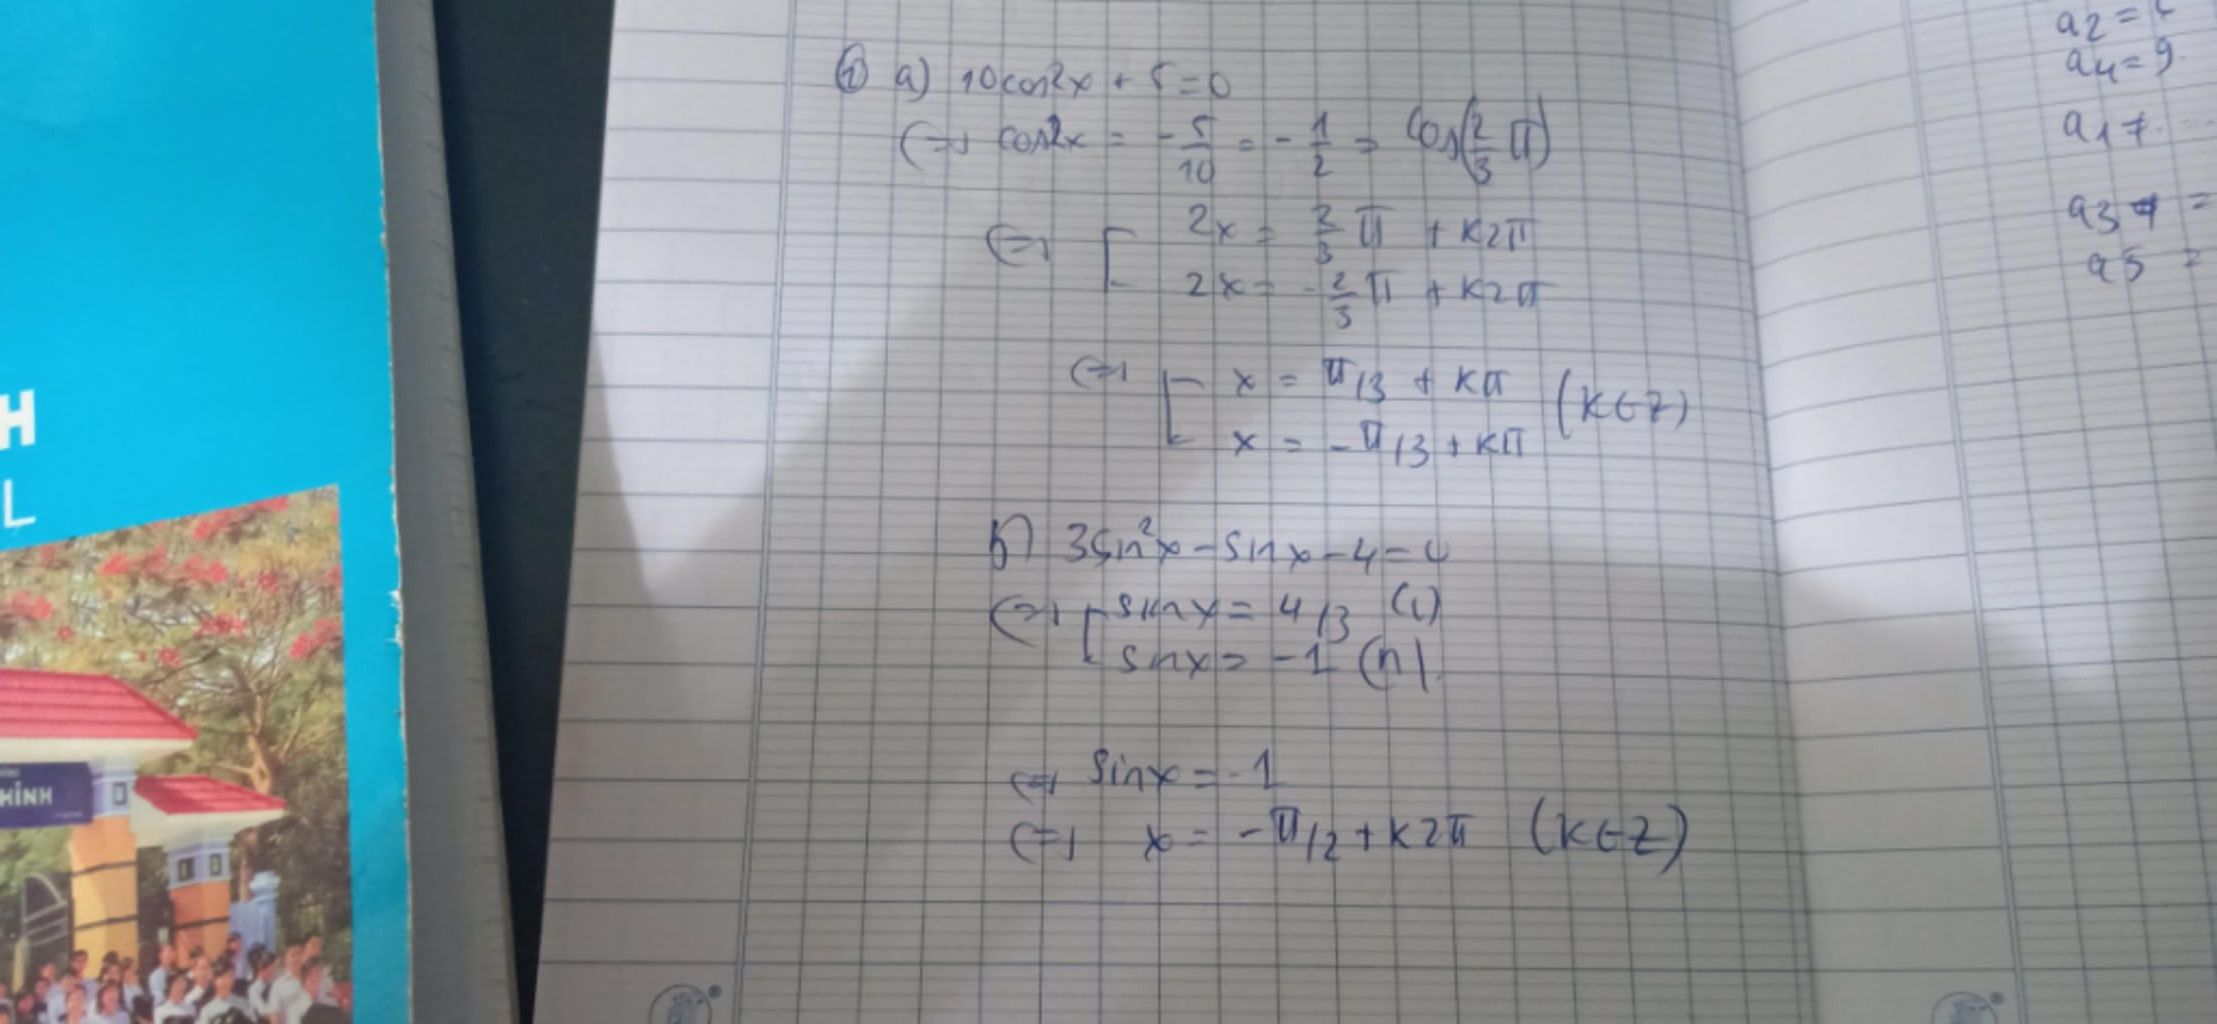 H
L
HÌNH
① a) 10cos2x + 5 = 0
(=) cos2x = -5/10 = -1/2 = cos(2/3 π)
(=) [ 2x = 2/3 π + k2π
2x = -2/3 π + k2π
(=) [ x = π/3 + kπ (k∈Z)
x = -π/3 + kπ
b) 3sin²x - sinx - 4 = 4
(=) [ sinx = 4/3 (l)
sinx = -1 (n)
(=) sinx = -1
(=) x = -π/2 + k2π (k∈Z)
a2 =
a4 = 9
a1
a3
a5 =